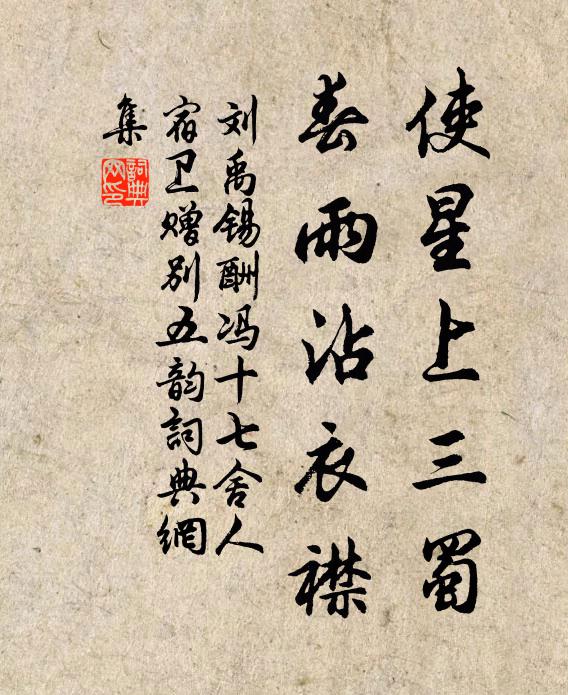 使星上三蜀
春雨沾衣襟
刘禹锡酬冯十七舍人
宿卫赠别五韵詞典網
集
詞典
网印